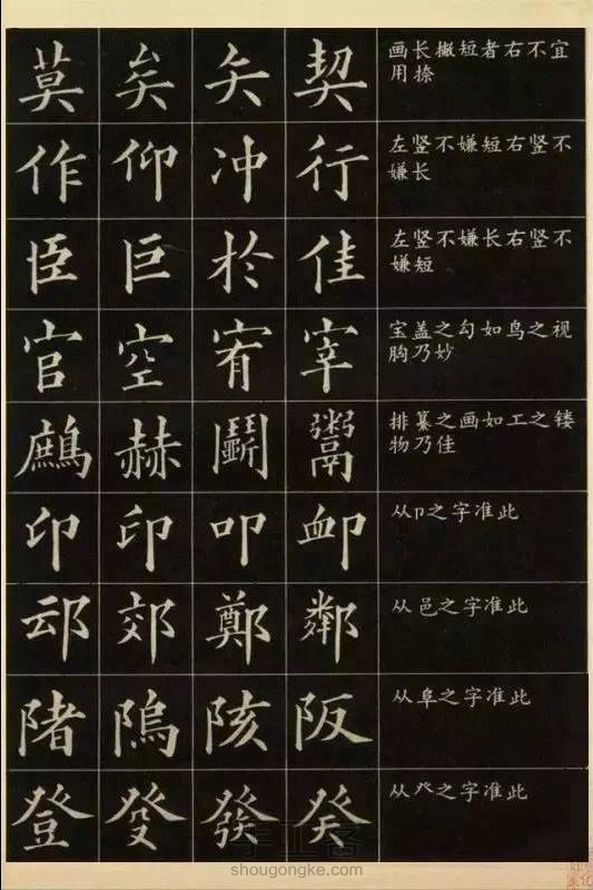 莫 矣 矢 契 画长撇短者右不宜
用捺
作 仰 冲 行 左竖不嫌短右竖不
嫌长
臣 巨 於 佳 左竖不嫌长右竖不
嫌短
官 空 宥 宰 宝盖之勾如鸟之视
胸乃妙
鷓 赫 鬭 鬻 排纂之画如工之镂
物乃佳
印 印 叩 卹 从卩之字准此
䢵 郊 鄭 鄰 从邑之字准此
陼 隝 陔 阪 从阜之字准此
登 癹 發 癸 从癶之字准此
手工客
shougongke.com